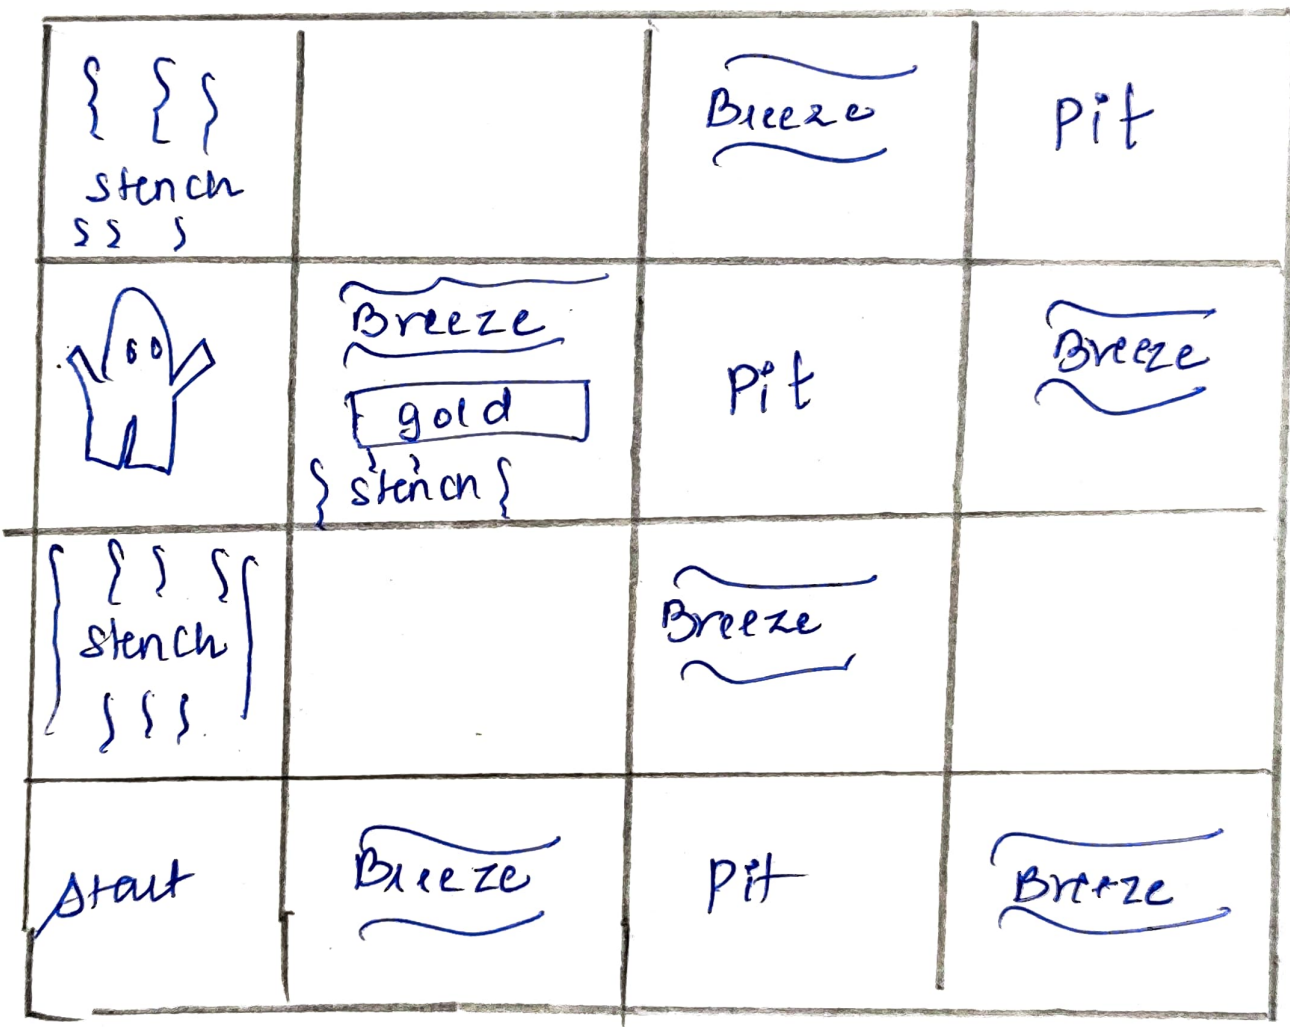 stench
Breeze
Pit
Breeze
gold
stench
Pit
Breeze
stench
Breeze
start
Breeze
Pit
Breeze